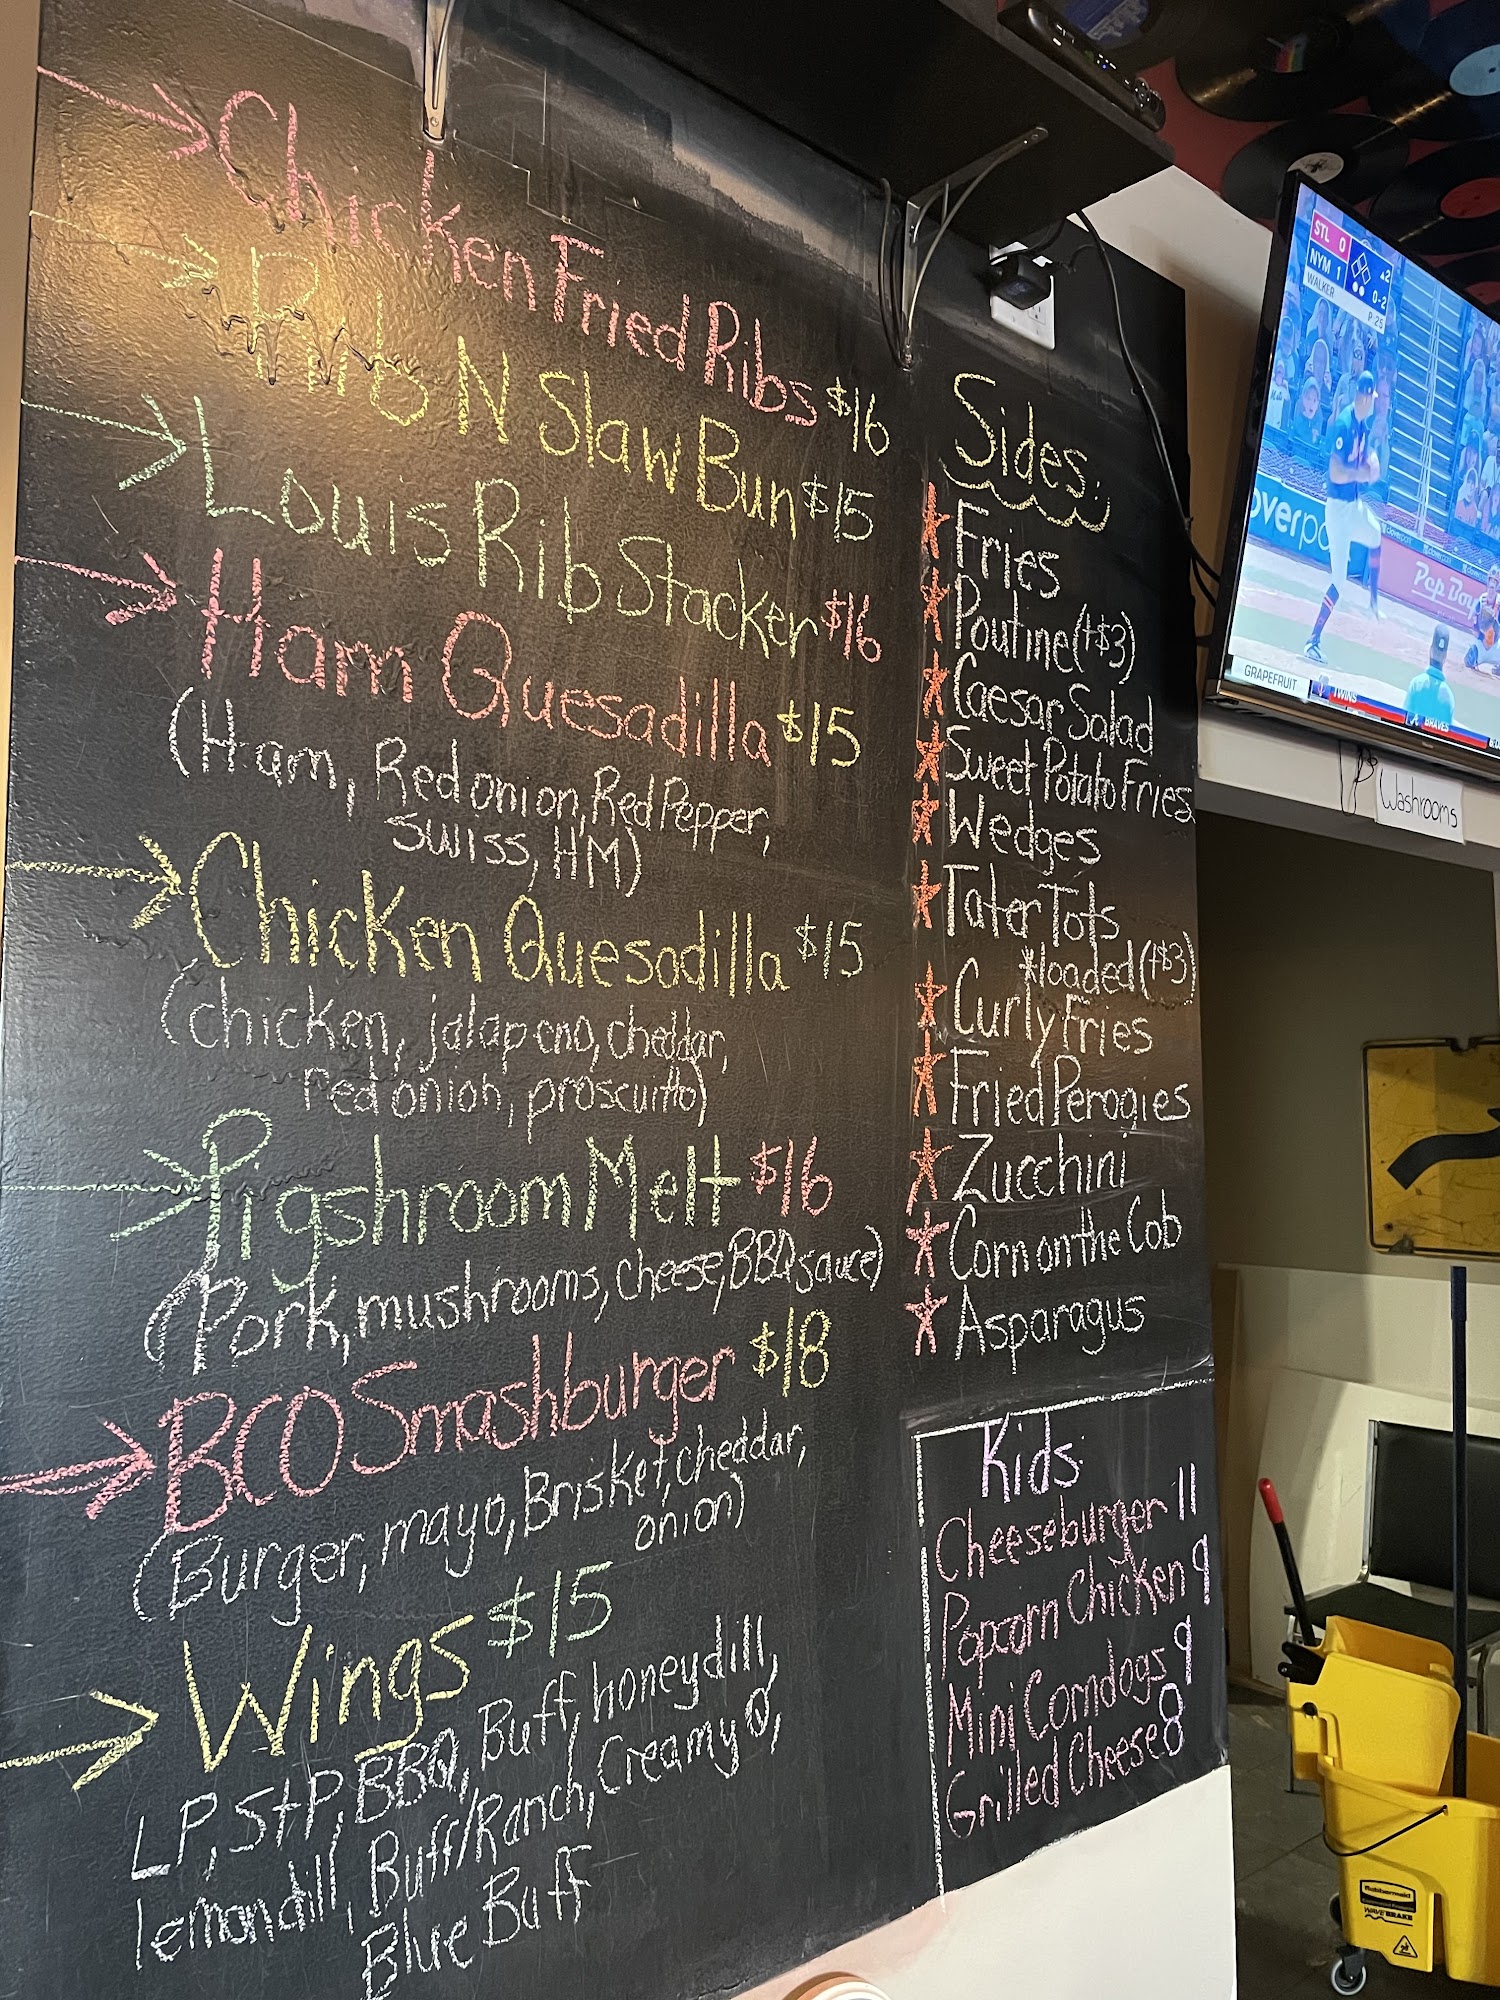 Chicken Fried Ribs $16
Rib N Slaw Bun $15
Louis Rib Stacker $16
Ham Quesadilla $15
(Ham, Red onion, Red Pepper,
swiss, HM)
Chicken Quesadilla $15
(chicken, jalapeno, cheddar,
red onion, proscuitto)
Pigshroom Melt $16
(Pork, mushrooms, cheese, BBQ sauce)
BCO Smashburger $18
(Burger, mayo, Brisket, cheddar,
onion)
Wings $15
LP, S+P, BBQ, Buff, honeydill,
lemondill, Buff/Ranch, Creamy Q,
Blue Buff
Sides:
Fries
Poutine (+$3)
Caesar Salad
Sweet Potato Fries
Wedges
Tater Tots
*loaded (+$3)
Curly Fries
Fried Perogies
Zucchini
Corn on the Cob
Asparagus
Kids:
Cheeseburger 11
Popcorn Chicken 9
Mini Corndogs 9
Grilled Cheese 8
STL 0
NYM 1
2
0-2
WALKER
P:25
Pep Boys
GRAPEFRUIT
TWINS
BRAVES
Washrooms
Rubbermaid
WAVEBRAKE